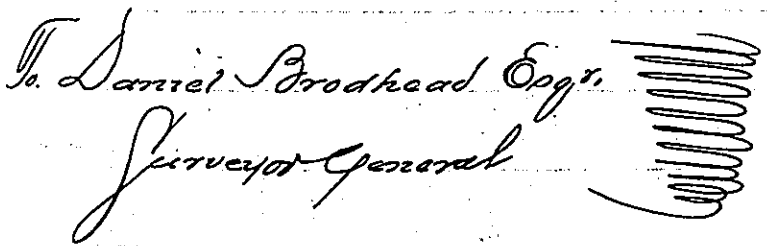 To. Daniel Brodhead Esqr.
Surveyor General